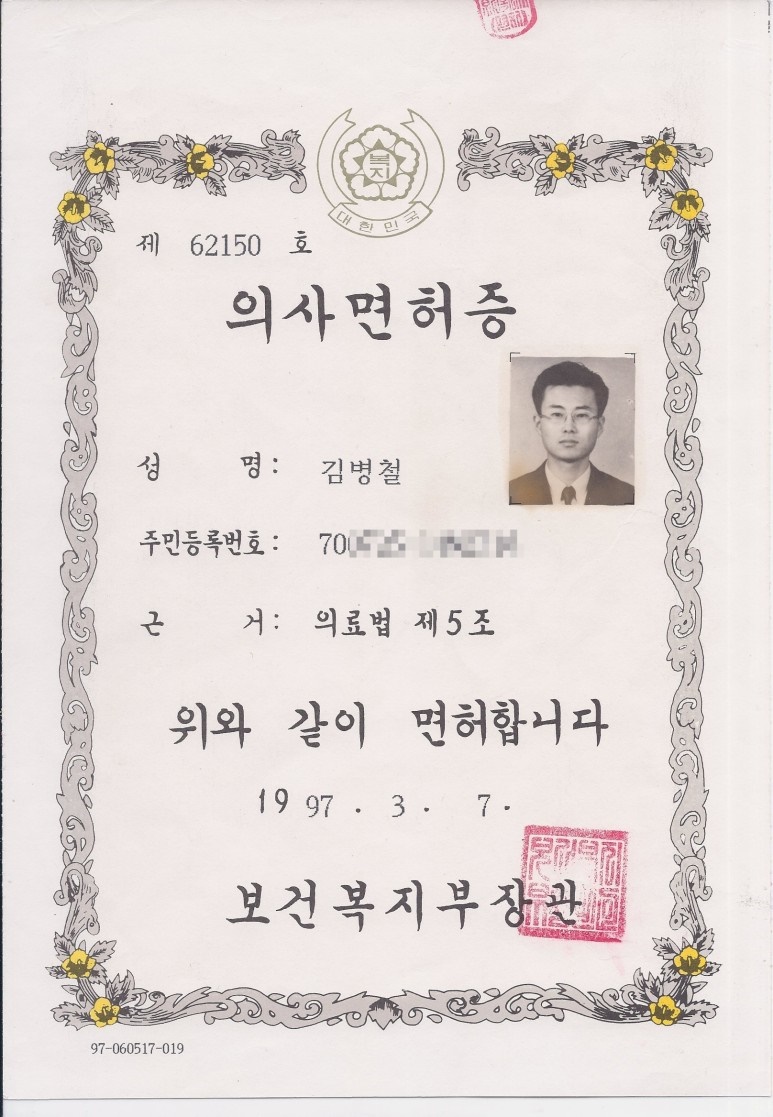 복지
대한민국
제 62150 호
의사면허증
성 명: 김병철
주민등록번호: 70
근 거: 의료법 제5조
위와 같이 면허합니다
19 97 . 3 . 7 .
보건복지부장관
97-060517-019